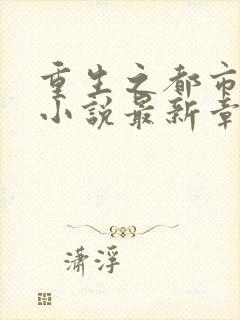 重生之都市
小说最新章
潇浮